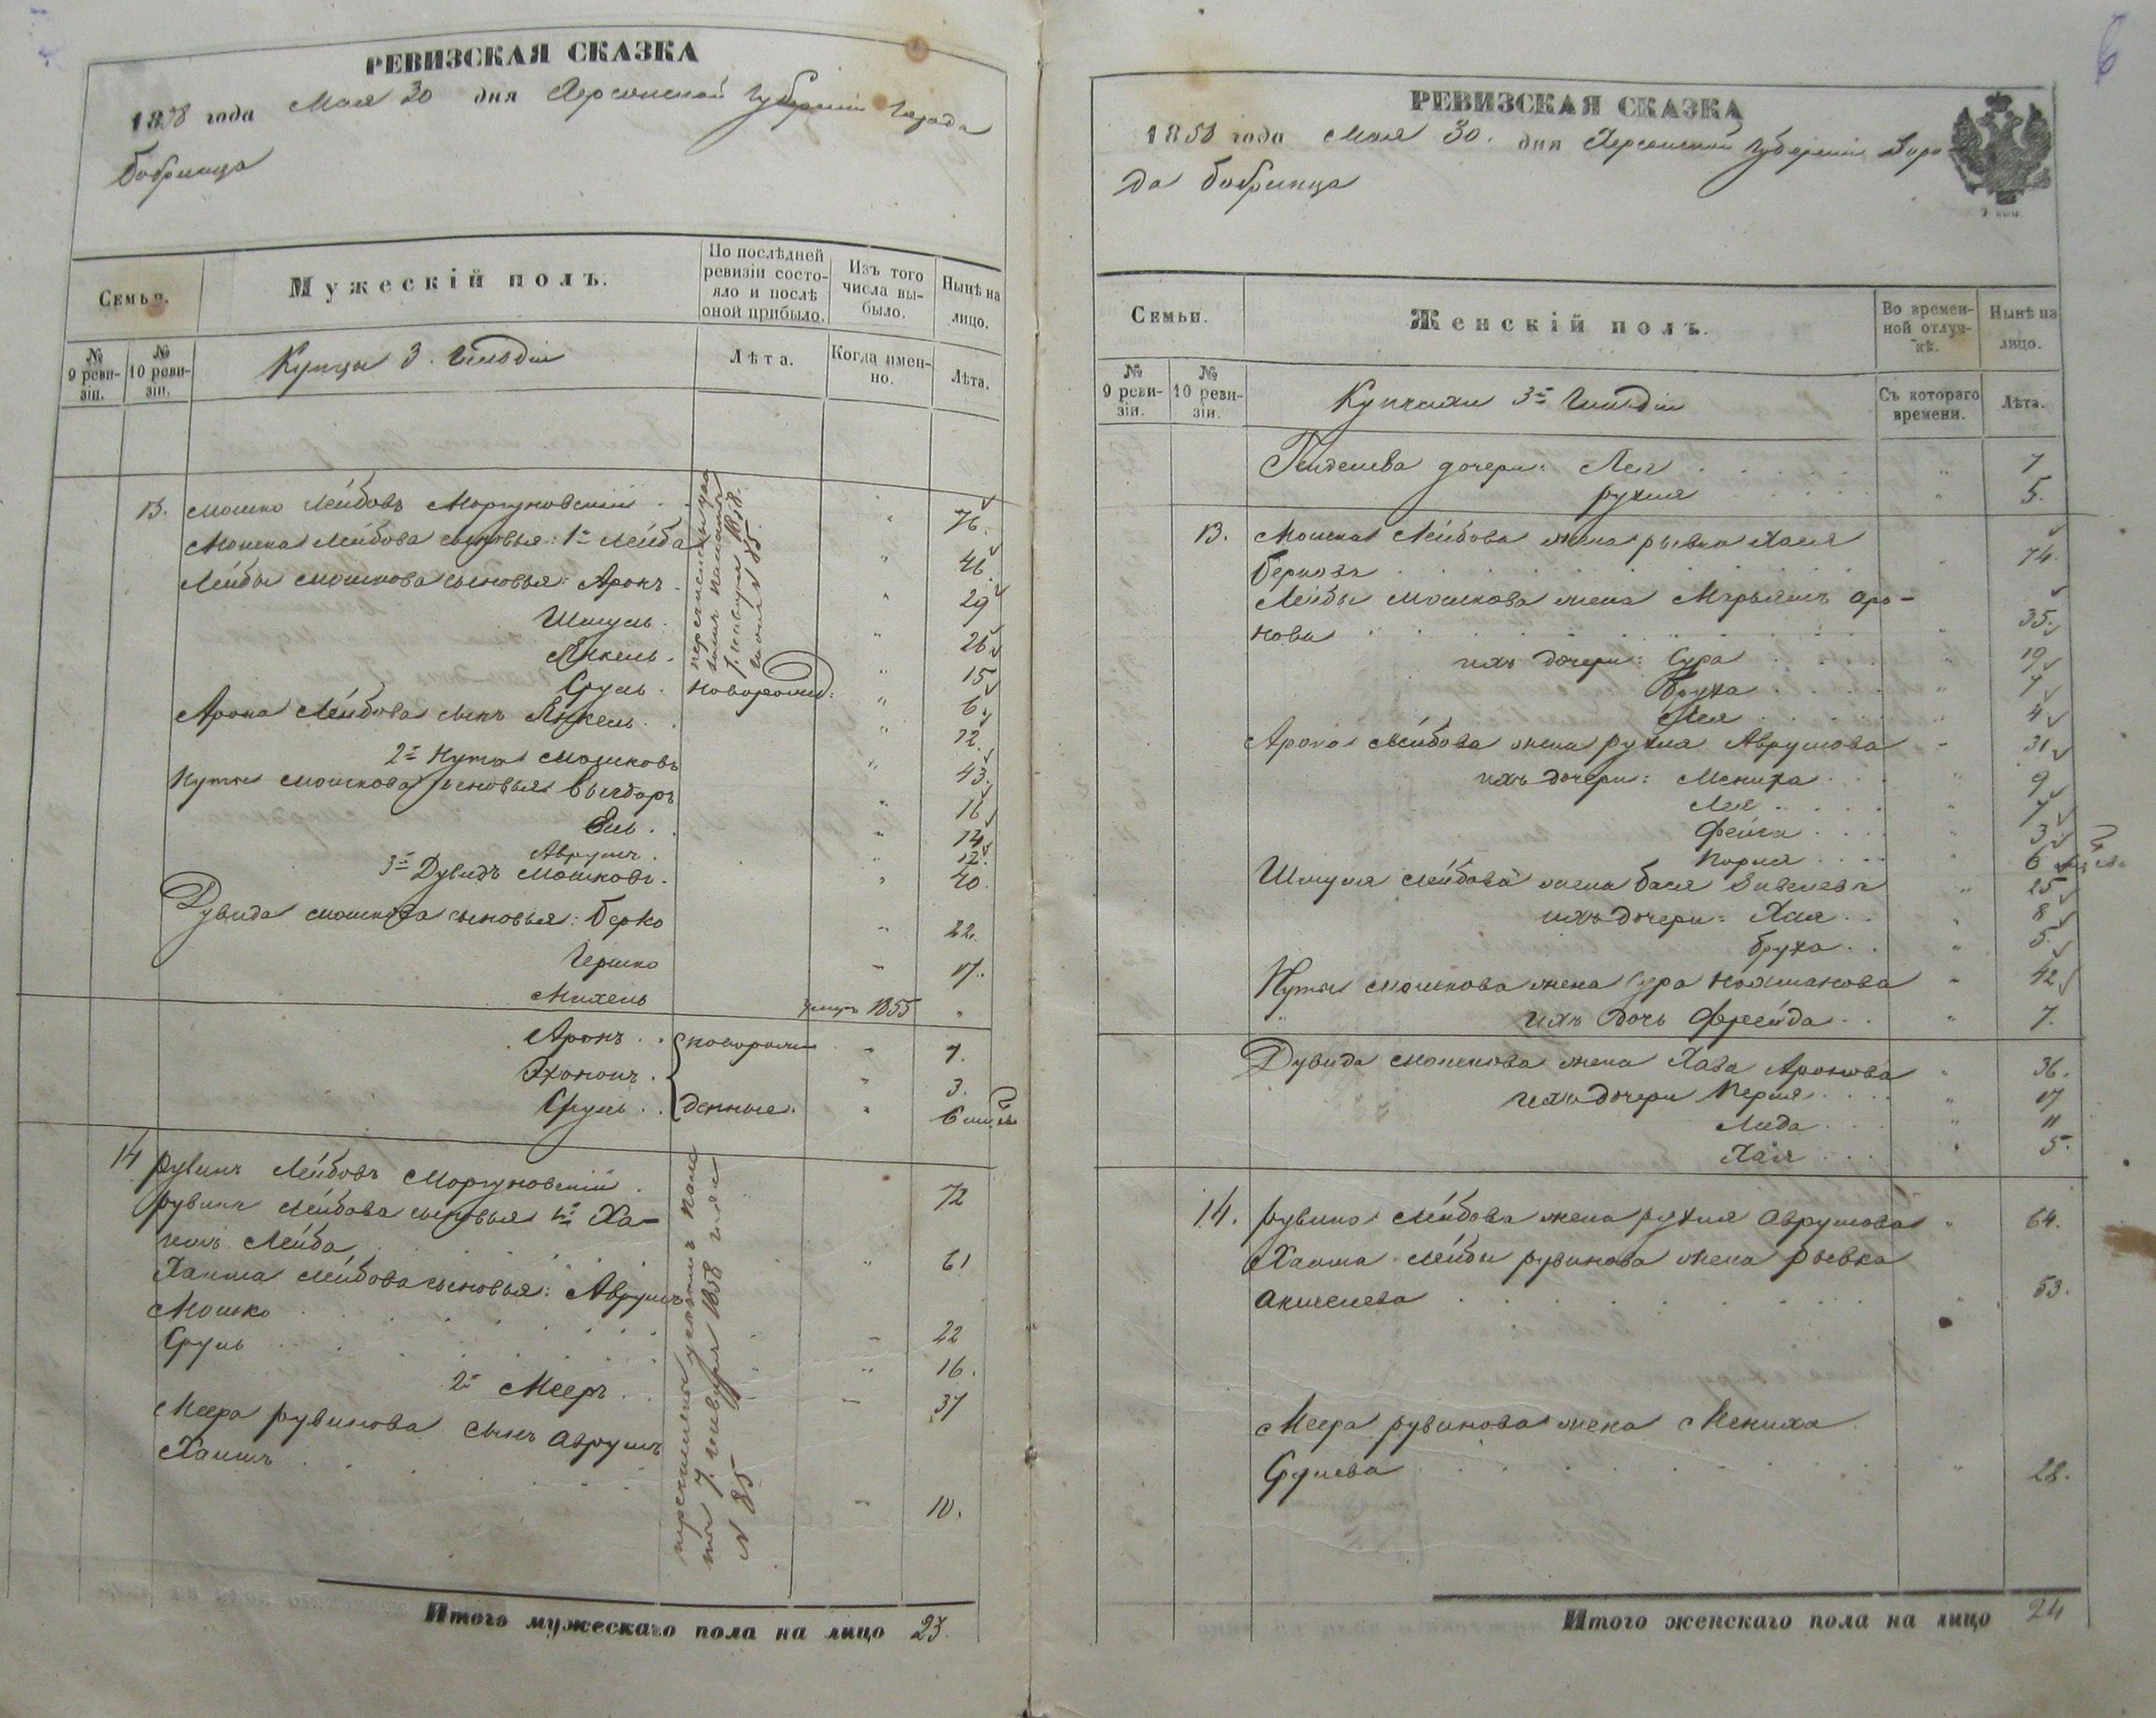 РЕВИЗСКАЯ СКАЗКА
1858 года Мая 30 дня Херсонской Губерніи Города
Бобринца
Семьи.
Мужескій полъ.
По послѣдней ревизіи состояло и послѣ оной прибыло.
Изъ того числа выбыло.
Нынѣ на лицо.
№ 9 ревизіи.
№ 10 ревизіи.
Купцы 3. Гильдіи
Лѣта.
Когда именно.
Лѣта.
13. Мошко Лейбовъ Моргуновскій 76.
Мошка Лейбова сыновья: 1й Лейба 46.
Лейбы Мошкова сыновья: Аронъ 29
Шмуль 26
Янкель 15
Сруль новорожд: 6
Арона Лейбова сынъ Янкель 12.
2й Нута Мошковъ 43.
Нуты Мошкова сыновья 16
14
Аврумъ 12.
3й Дувидъ Мошковъ 40.
Дувида Мошкова сыновья: Берко 22.
Гершко 17.
Михель умеръ 1855
Аронъ новорож 7.
3.
Сруль денные. 6 мѣс
перечислены
7. Января 1858.
№ 85.
14 Рувинъ Лейбовъ Моргуновскій 72
Рувина Лейбова сыновья 1й Ха-
имъ Лейба 61
Хаима Лейбова сыновья: Аврумъ
Мошко 22
Сруль 16.
2й Мееръ 37
Меера Рувинова сынъ Аврумъ
Хаимъ 10.
перечислены указомъ пала
ты 7. Января 1858 года
№ 85
Итого мужескаго пола на лицо 23.
6
РЕВИЗСКАЯ СКАЗКА
1858 года Мая 30. дня Херсонской Губерніи Горо
да Бобринца
Семьи.
Женскій полъ.
Во временной отлучкѣ.
Нынѣ на лицо.
№ 9 ревизіи.
№ 10 ревизіи.
Купчихи 3й Гильдіи
Съ котораго времени.
Лѣта.
дочери: Лея 7
Рухля 5.
13. Мошка Лейбова жена Рывка Хая
Беркова 74.
Лейбы Мошкова жена Марьямъ Аро-
нова 35.
ихъ дочери: Сура 19
Бруха 7
Лея 4
Арона Лейбова жена Рухля Аврумова 31
ихъ дочери: Мениха 9
Лея 7
Фейга 3
6
Шмуля Лейбова жена Бася 25
ихъ дочери: Хая 8
Бруха 5.
Нуты Мошкова жена Сура 42
ихъ дочь Фрейда 7.
Дувида Мошкова жена Хава Аронова 36.
ихъ дочери Перля 17
11
Хая 5.
14. Рувина Лейбова жена Рухля Аврумова 64.
Хаима Лейбы Рувинова жена Рывка
53.
Меера Рувинова жена Мениха
Срулева 28.
Итого женскаго пола на лицо 24